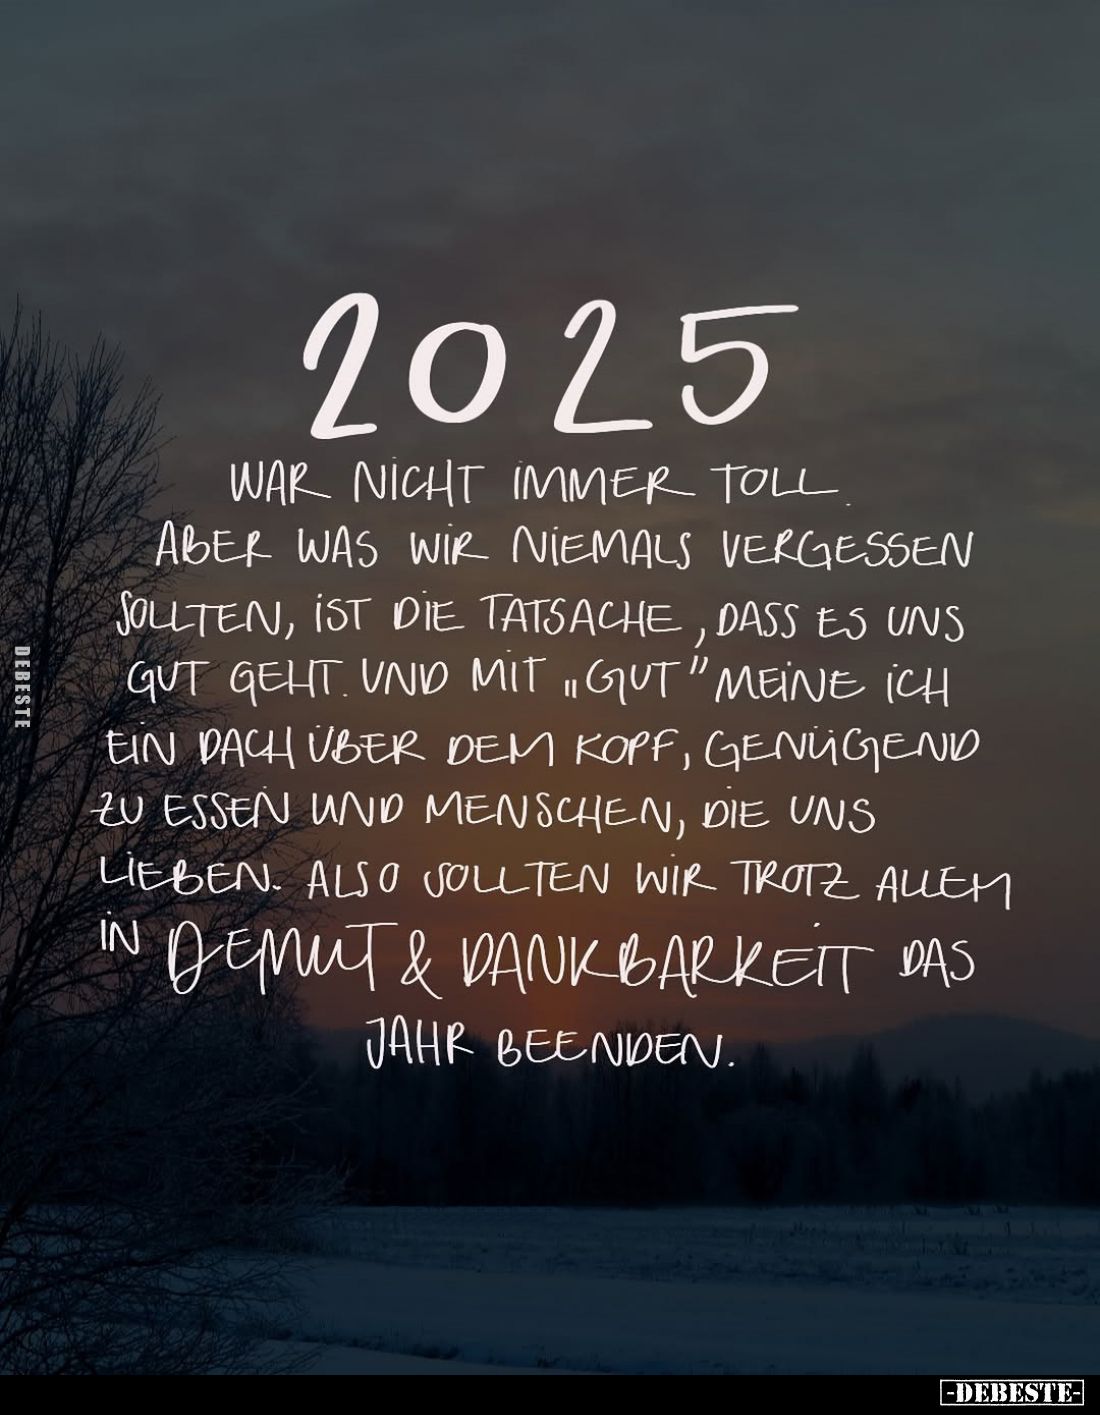 2025
WAR NICHT IMMER TOLL.
ABER WAS WIR NIEMALS VERGESSEN
SOLLTEN, IST DIE TATSACHE, DASS ES UNS
GUT GEHT. UND MIT „GUT” MEINE ICH
EIN DACH ÜBER DEM KOPF, GENÜGEND
ZU ESSEN UND MENSCHEN, DIE UNS
LIEBEN. ALSO SOLLTEN WIR TROTZ ALLEM
IN DEMUT & DANKBARKEIT DAS
JAHR BEENDEN.
DEBESTE
-DEBESTE-